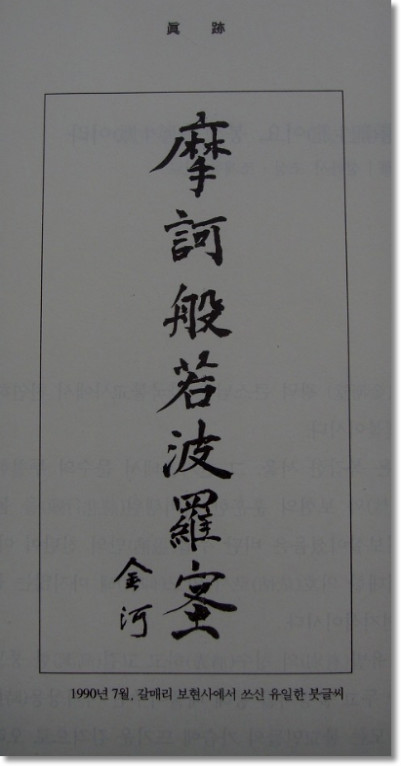 眞 跡
摩訶般若波羅蜜
金河
1990년 7월, 갈매리 보현사에서 쓰신 유일한 붓글씨